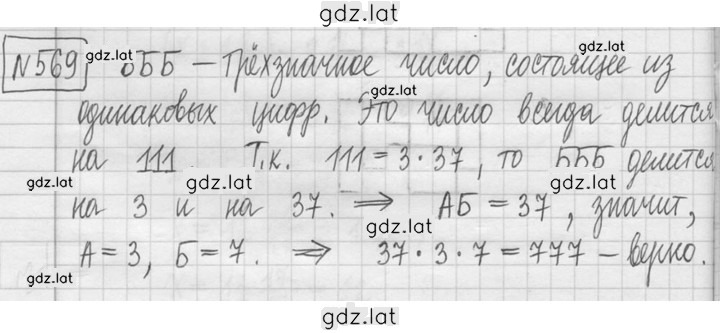 gdz.lat
№569 gdz.lat БББ — трёхзначное число, состоящее из gdz.lat
одинаковых цифр. Это число всегда делится gdz.lat
на 111 Т.к. 111 = 3 · 37, то БББ делится
gdz.lat gdz.lat gdz.lat
на 3 и на 37. ⟹ АБ = 37, значит,
gdz.lat
А = 3, Б = 7. ⟹ 37 · 3 · 7 = 777 — верно.
gdz.lat gdz.lat
gdz.lat